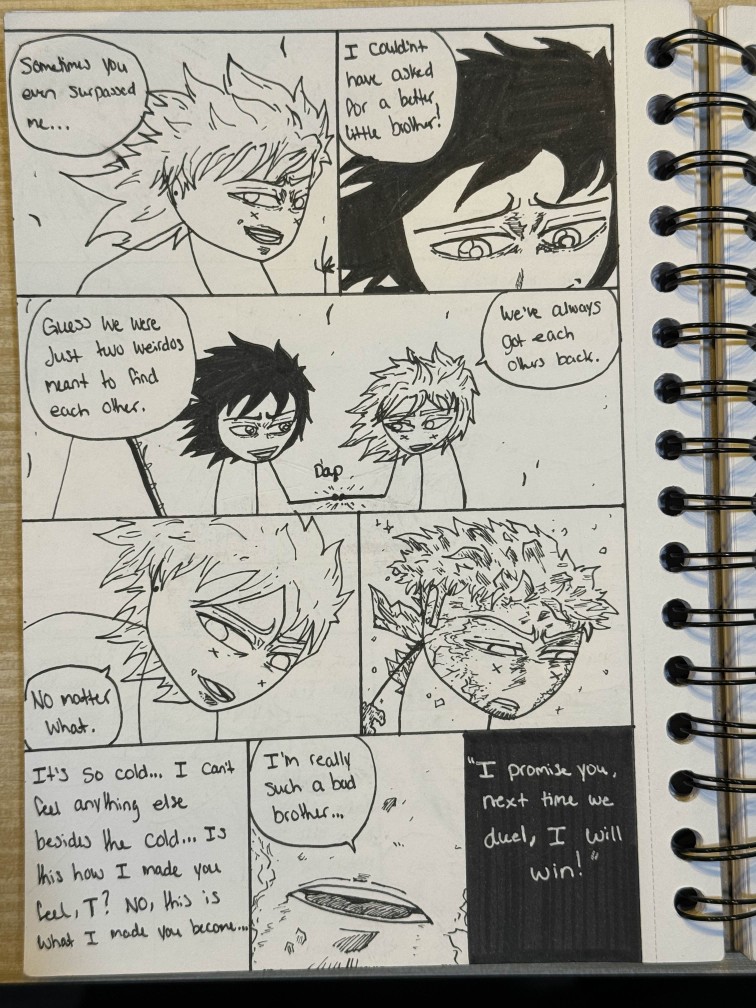 Sometimes you
even surpassed
me...
I couldn't
have asked
for a better
little brother!
Guess we were
just two weirdos
meant to find
each other.
We've always
got each
others back.
Dap
No matter
what.
It's so cold... I can't
feel anything else
besides the cold... Is
this how I made you
feel, T? No, this is
what I made you become...
I'm really
such a bad
brother...
"I promise you,
next time we
duel, I will
win!"